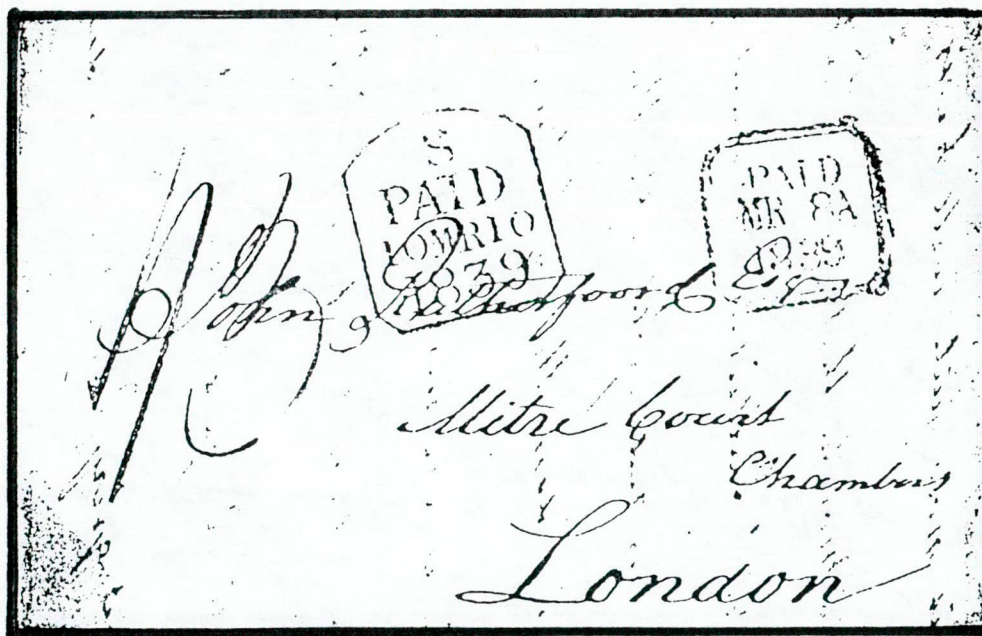 S
PAID
10MR10
1839
PAID
MR 8A
1839
John Rutherfoord Esqr
Mitre Court
Chambers
London